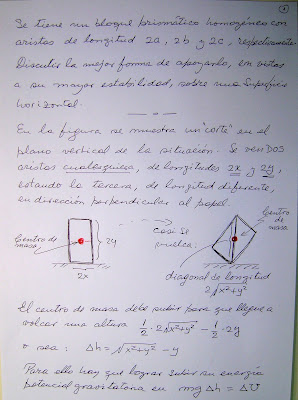 Se tiene un bloque prismático homogéneo con
aristas de longitud 2a, 2b y 2c, respectivamente.
Discutir la mejor forma de apoyarlo, con vistas
a su mayor estabilidad, sobre una superficie
horizontal.
En la figura se muestra un "corte" en el
plano vertical de la situación. Se ven DOS
aristas cualesquiera, de longitudes 2x y 2y,
estando la tercera, de longitud diferente,
en dirección perpendicular al papel.
Centro de
masa
2y
2x
Casi se
vuelca:
Centro
de
masa
diagonal de longitud
2√x²+y²
El centro de masa debe subir para que llegue a
volcar una altura 1/2 · 2√x²+y² − 1/2 · 2y
o sea: Δh = √x²+y² − y
Para ello hay que lograr subir su energía
potencial gravitatoria en mgΔh = ΔU